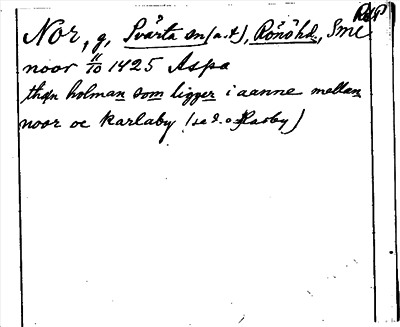 RAP
Nor, g, Svärta sn (a.t), Rönö hd, Sml
noor 11/10 1425 Aspa
then holman som ligger i aanne mellan
noor oc karlaby (se d.o.)